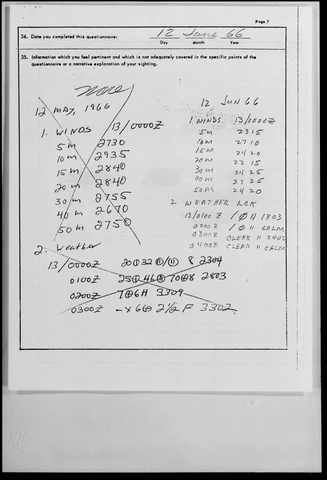 Page 7
34. Date you completed this questionnaire:
12 June 66
Day Month Year
35. Information which you feel pertinent and which is not adequately covered in the specific points of the
questionnaire or a narrative explanation of your sighting.
none
12 MAY, 1966
1. WINDS 13/0000Z
5 m 2730
10 m 2935
15 m 2840
20 m 2840
30 m 2755
40 m 2670
50 m 2750
2. Weather
13/0000Z 20⦶32⦶/⑾ 8 2304
0100Z 25⦶46⦶70⊕8 2803
0200Z 7⊕6H 3309
0300Z -X6⊕ 2½ F 3302
12 JUN 66
1. WINDS 13/0000Z
5 M 2315
10 M 2710
15 M 2420
20 M 23 15
30 M 24 25
40 M 23 25
50 M 24 20
2 WEATHER LCK
13/0100Z /Φ 11 1803
0200Z /Φ 11 CALM
0300Z CLEAR 11
0400Z CLEAR 11 CALM